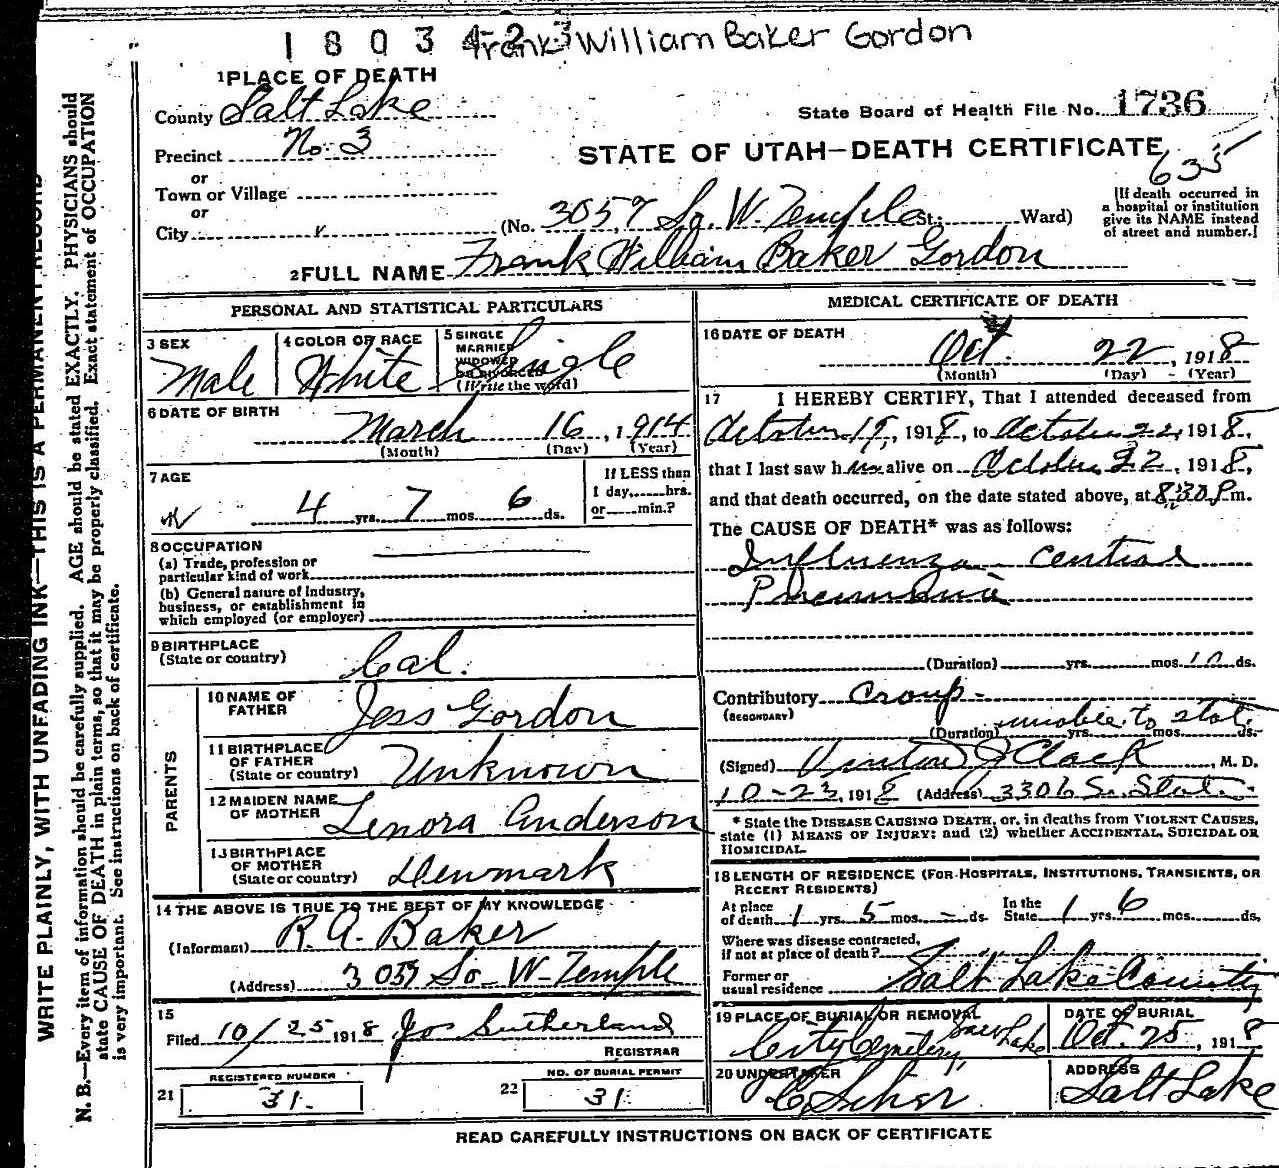 1 8 0 3 4 2 3 Frank William Baker Gordon
1 PLACE OF DEATH
County Salt Lake
State Board of Health File No. 1736
Precinct No. 3
STATE OF UTAH—DEATH CERTIFICATE
635
or
Town or Village
or
City (No. 3057 So. W. Temple St; Ward)
[If death occurred in
a hospital or institution
give its NAME instead
of street and number.]
2 FULL NAME Frank William Baker Gordon
PERSONAL AND STATISTICAL PARTICULARS
3 SEX
Male
4 COLOR OR RACE
White
5 SINGLE
MARRIED
WIDOWED
OR DIVORCED
(Write the word)
Single
6 DATE OF BIRTH
March 16, 1914
(Month) (Day) (Year)
7 AGE
4 yrs. 7 mos. 6 ds.
If LESS than
1 day,......hrs.
or......min.?
8 OCCUPATION
(a) Trade, profession or
particular kind of work
(b) General nature of industry,
business, or establishment in
which employed (or employer)
9 BIRTHPLACE
(State or country)
Cal.
PARENTS
10 NAME OF
FATHER
Jess Gordon
11 BIRTHPLACE
OF FATHER
(State or country)
Unknown
12 MAIDEN NAME
OF MOTHER
Lenora Anderson
13 BIRTHPLACE
OF MOTHER
(State or country)
Denmark
14 THE ABOVE IS TRUE TO THE BEST OF MY KNOWLEDGE
(Informant) R. A. Baker
(Address) 3057 So W- Temple
15
Filed 10/25 1918 Jos Sutherland
REGISTRAR
REGISTERED NUMBER
21 31
NO. OF BURIAL PERMIT
22 31
MEDICAL CERTIFICATE OF DEATH
16 DATE OF DEATH
Oct. 22, 1918
(Month) (Day) (Year)
17 I HEREBY CERTIFY, That I attended deceased from
October 19, 1918, to October 22, 1918,
that I last saw him alive on October 22, 1918,
and that death occurred, on the date stated above, at 8:30 P m.
The CAUSE OF DEATH* was as follows:
Influenza central
Pneumonia
(Duration) yrs. mos. 10 ds.
Contributory Croup -
(SECONDARY)
unable to state
(Duration) yrs. mos. ds.
(Signed) Clark, M. D.
10-23, 1918 (Address) 3306 So. State
* State the DISEASE CAUSING DEATH, or, in deaths from VIOLENT CAUSES,
state (1) MEANS OF INJURY; and (2) whether ACCIDENTAL, SUICIDAL OR
HOMICIDAL.
18 LENGTH OF RESIDENCE (FOR HOSPITALS, INSTITUTIONS, TRANSIENTS, OR
RECENT RESIDENTS)
At place
of death 1 yrs. 5 mos. - ds. In the
State 1 yrs 6 mos. ds.
Where was disease contracted,
if not at place of death?
Former or
usual residence Salt Lake County
19 PLACE OF BURIAL OR REMOVAL
City Cemetery, Salt Lake
DATE OF BURIAL
Oct. 25, 1918
20 UNDERTAKER
ADDRESS
Salt Lake
READ CAREFULLY INSTRUCTIONS ON BACK OF CERTIFICATE
WRITE PLAINLY, WITH UNFADING INK—THIS IS A PERMANENT RECORD
N. B.—Every item of information should be carefully supplied. AGE should be stated EXACTLY. PHYSICIANS should
state CAUSE OF DEATH in plain terms, so that it may be properly classified. Exact statement of OCCUPATION
is very important. See instructions on back of certificate.